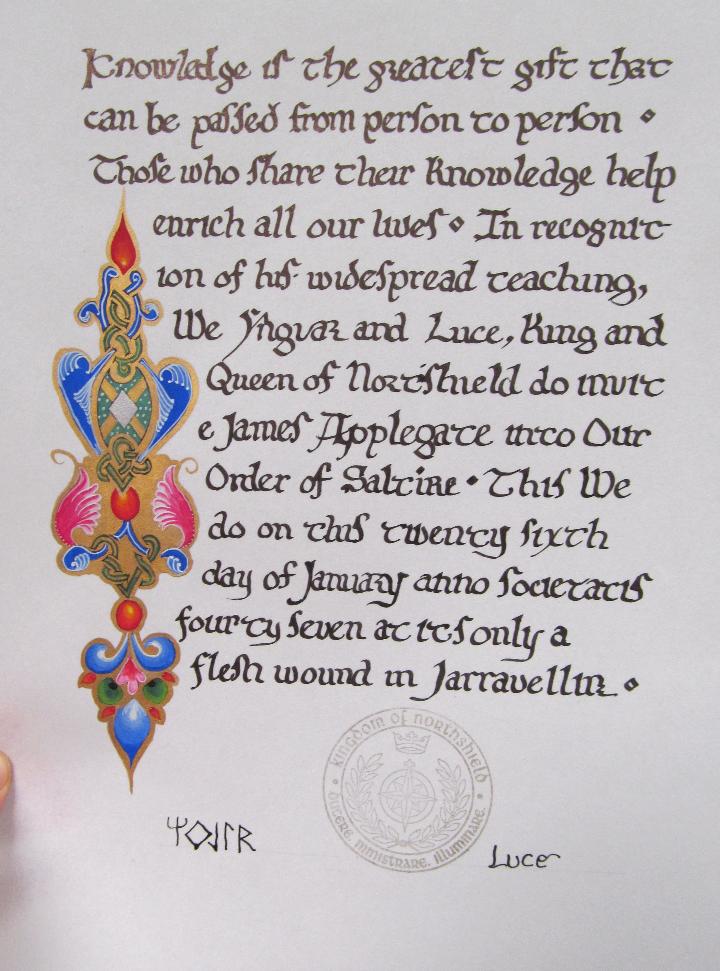 Knowladge is the greatest gift that
can be passed from person to person ⋄
Those who share their knowledge help
enrich all our lives ⋄ In recognit-
ion of his widespread teaching,
We Yngvar and Luce, King and
Queen of Northshield do invit
e James Applegate into Our
Order of Saltire • This We
do on this twenty sixth
day of January anno Societatis
fourty seven at it's only a
flesh wound in Jarravellir ⋄
KINGDOM OF NORTHSHIELD
MINISTRARE. ILLUMINARE.
Luce